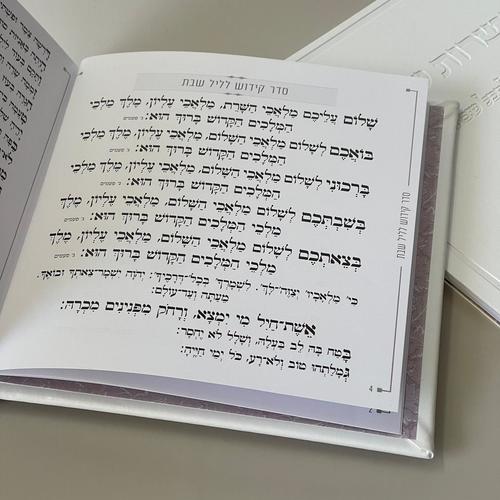 סדר קידוש לליל שבת
שָׁלוֹם עֲלֵיכֶם מַלְאֲכֵי הַשָּׁרֵת, מַלְאֲכֵי עֶלְיוֹן, מֶלֶךְ מַלְכֵי
הַמְּלָכִים הַקָּדוֹשׁ בָּרוּךְ הוּא: ג׳ פעמים
בּוֹאֲכֶם לְשָׁלוֹם מַלְאֲכֵי הַשָּׁלוֹם, מַלְאֲכֵי עֶלְיוֹן, מֶלֶךְ מַלְכֵי
הַמְּלָכִים הַקָּדוֹשׁ בָּרוּךְ הוּא: ג׳ פעמים
בָּרְכוּנִי לְשָׁלוֹם מַלְאֲכֵי הַשָּׁלוֹם, מַלְאֲכֵי עֶלְיוֹן, מֶלֶךְ מַלְכֵי
הַמְּלָכִים הַקָּדוֹשׁ בָּרוּךְ הוּא: ג׳ פעמים
בְּשִׁבְתְּכֶם לְשָׁלוֹם מַלְאֲכֵי הַשָּׁלוֹם, מַלְאֲכֵי עֶלְיוֹן, מֶלֶךְ
מַלְכֵי הַמְּלָכִים הַקָּדוֹשׁ בָּרוּךְ הוּא: ג׳ פעמים
בְּצֵאתְכֶם לְשָׁלוֹם מַלְאֲכֵי הַשָּׁלוֹם, מַלְאֲכֵי עֶלְיוֹן, מֶלֶךְ
מַלְכֵי הַמְּלָכִים הַקָּדוֹשׁ בָּרוּךְ הוּא: ג׳ פעמים
כִּי מַלְאָכָיו יְצַוֶּה־לָּךְ. לִשְׁמָרְךָ בְּכָל־דְּרָכֶיךָ: יְהוָה יִשְׁמָר־צֵאתְךָ וּבוֹאֶךָ.
מֵעַתָּה וְעַד־עוֹלָם:
אֵשֶׁת־חַיִל מִי יִמְצָא, וְרָחֹק מִפְּנִינִים מִכְרָהּ:
בָּטַח בָּהּ לֵב בַּעְלָהּ, וְשָׁלָל לֹא יֶחְסָר:
גְּמָלַתְהוּ טוֹב וְלֹא־רָע, כֹּל יְמֵי חַיֶּיהָ:
סדר קידוש לליל שבת
4
2